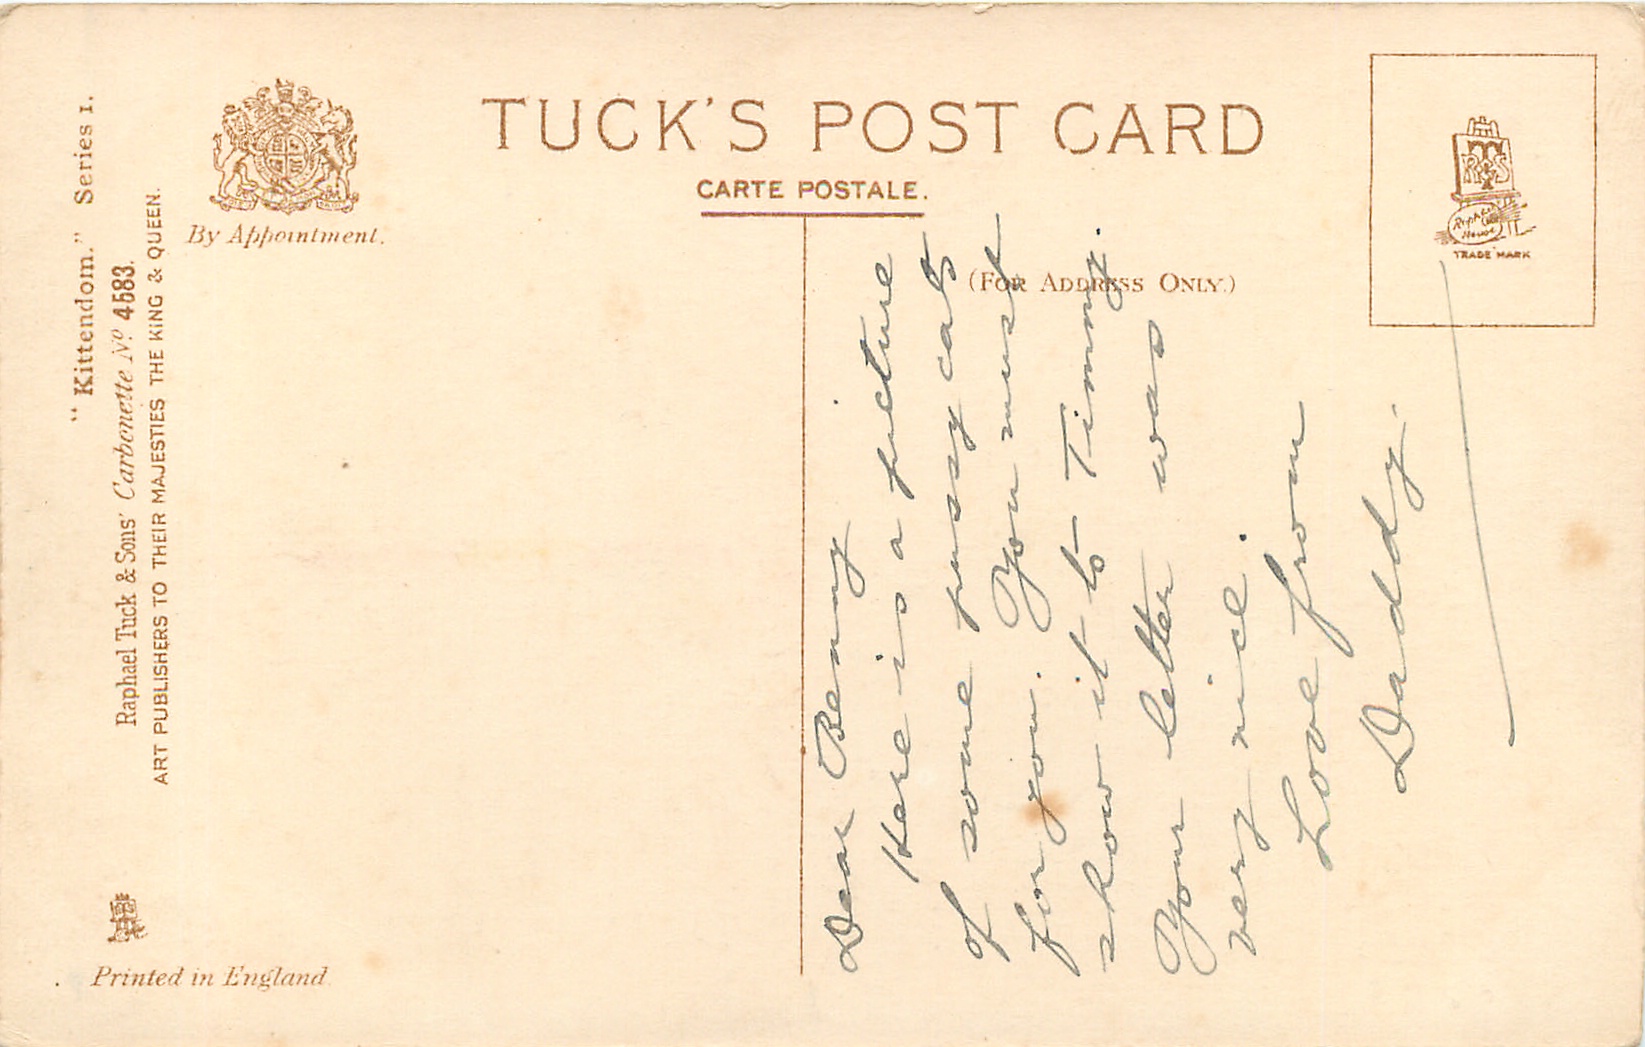 "Kittendom." Series 1.
Raphael Tuck & Sons' Carbonette No. 4583.
ART PUBLISHERS TO THEIR MAJESTIES THE KING & QUEEN.
By Appointment.
Printed in England
TUCK'S POST CARD
CARTE POSTALE.
(FOR ADDRESS ONLY.)
RTS
Raphael
House
TRADE MARK
Dear Benny
Here is a picture
of some pussy cats
for you. You must
show it to Timmy.
Your letter was
very nice.
Love from
Daddy.